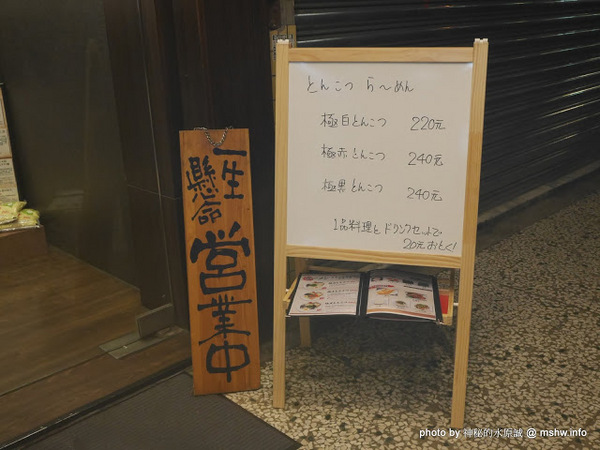 一生
懸命
営業中
とんこつ ら〜めん
極白とんこつ 220元
極赤とんこつ 240元
極黒とんこつ 240元
1品料理とドリンクセットで
20元おとく!
photo by 神秘的水原誠 @ mshw.info